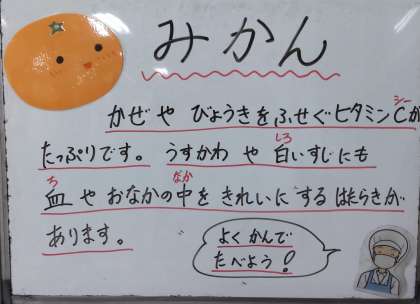 みかん
シー
かぜや びょうきをふせぐビタミンCが
しろ
たっぷりです。 うすかわ や 白いすじにも
ち なか
血 や おなかの中を きれいに する はたらきが
あります。
よく かんで
たべよう!